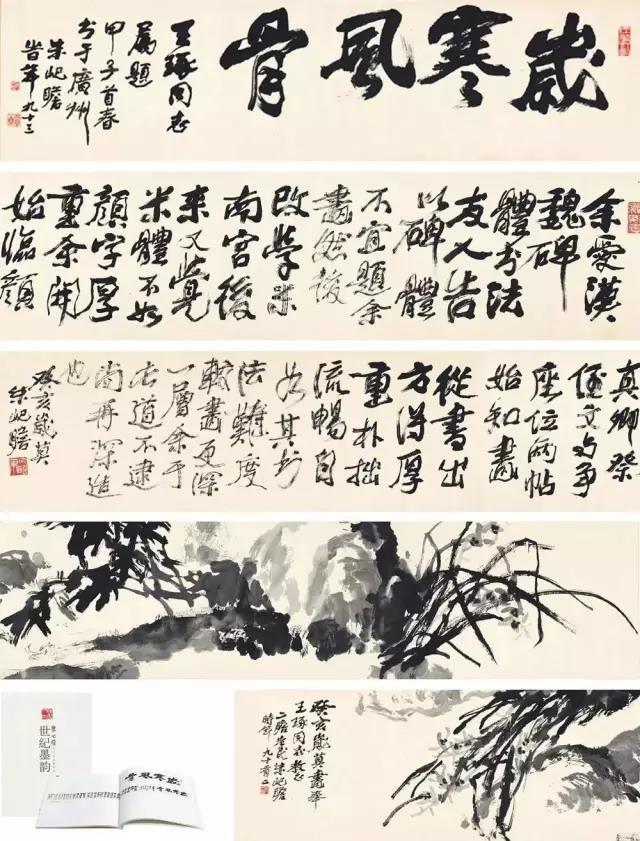 歲寒風骨
王琢同志
屬題
甲子首春
书于廣州
朱屺瞻
時年九十三
余愛漢
魏碑
體书法
友人告
以碑體
不宜題余
畫然後
改學米
南宮後
來又覺
米體不如
顏字厚
重余開
始臨顏
真卿祭
侄文与争
座位两帖
始知畫
從書出
方得厚
重朴拙
流暢自
如其
法難度
較畫更深
一層余于
道不逮
尚再深造
也
癸亥歲莫
朱屺瞻
癸亥歲莫畫奉
王琢同志教正
二瞻老民朱屺瞻
時年九十有二
世纪墨韵
歲寒風骨